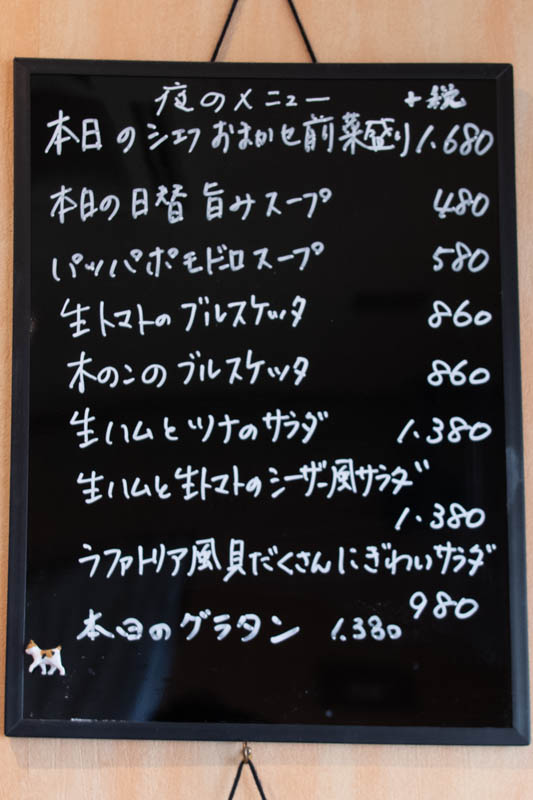 夜のメニュー +税
本日のシェフおまかせ前菜盛り 1.680
本日の日替旨みスープ 480
パッパポモドーロスープ 580
生トマトのブルスケッタ 860
木のこのブルスケッタ 860
生ハムとツナのサラダ 1.380
生ハムと生トマトのシーザー風サラダ
1.380
ラファトリア風具だくさんにぎわいサラダ
980
本日のグラタン 1.380